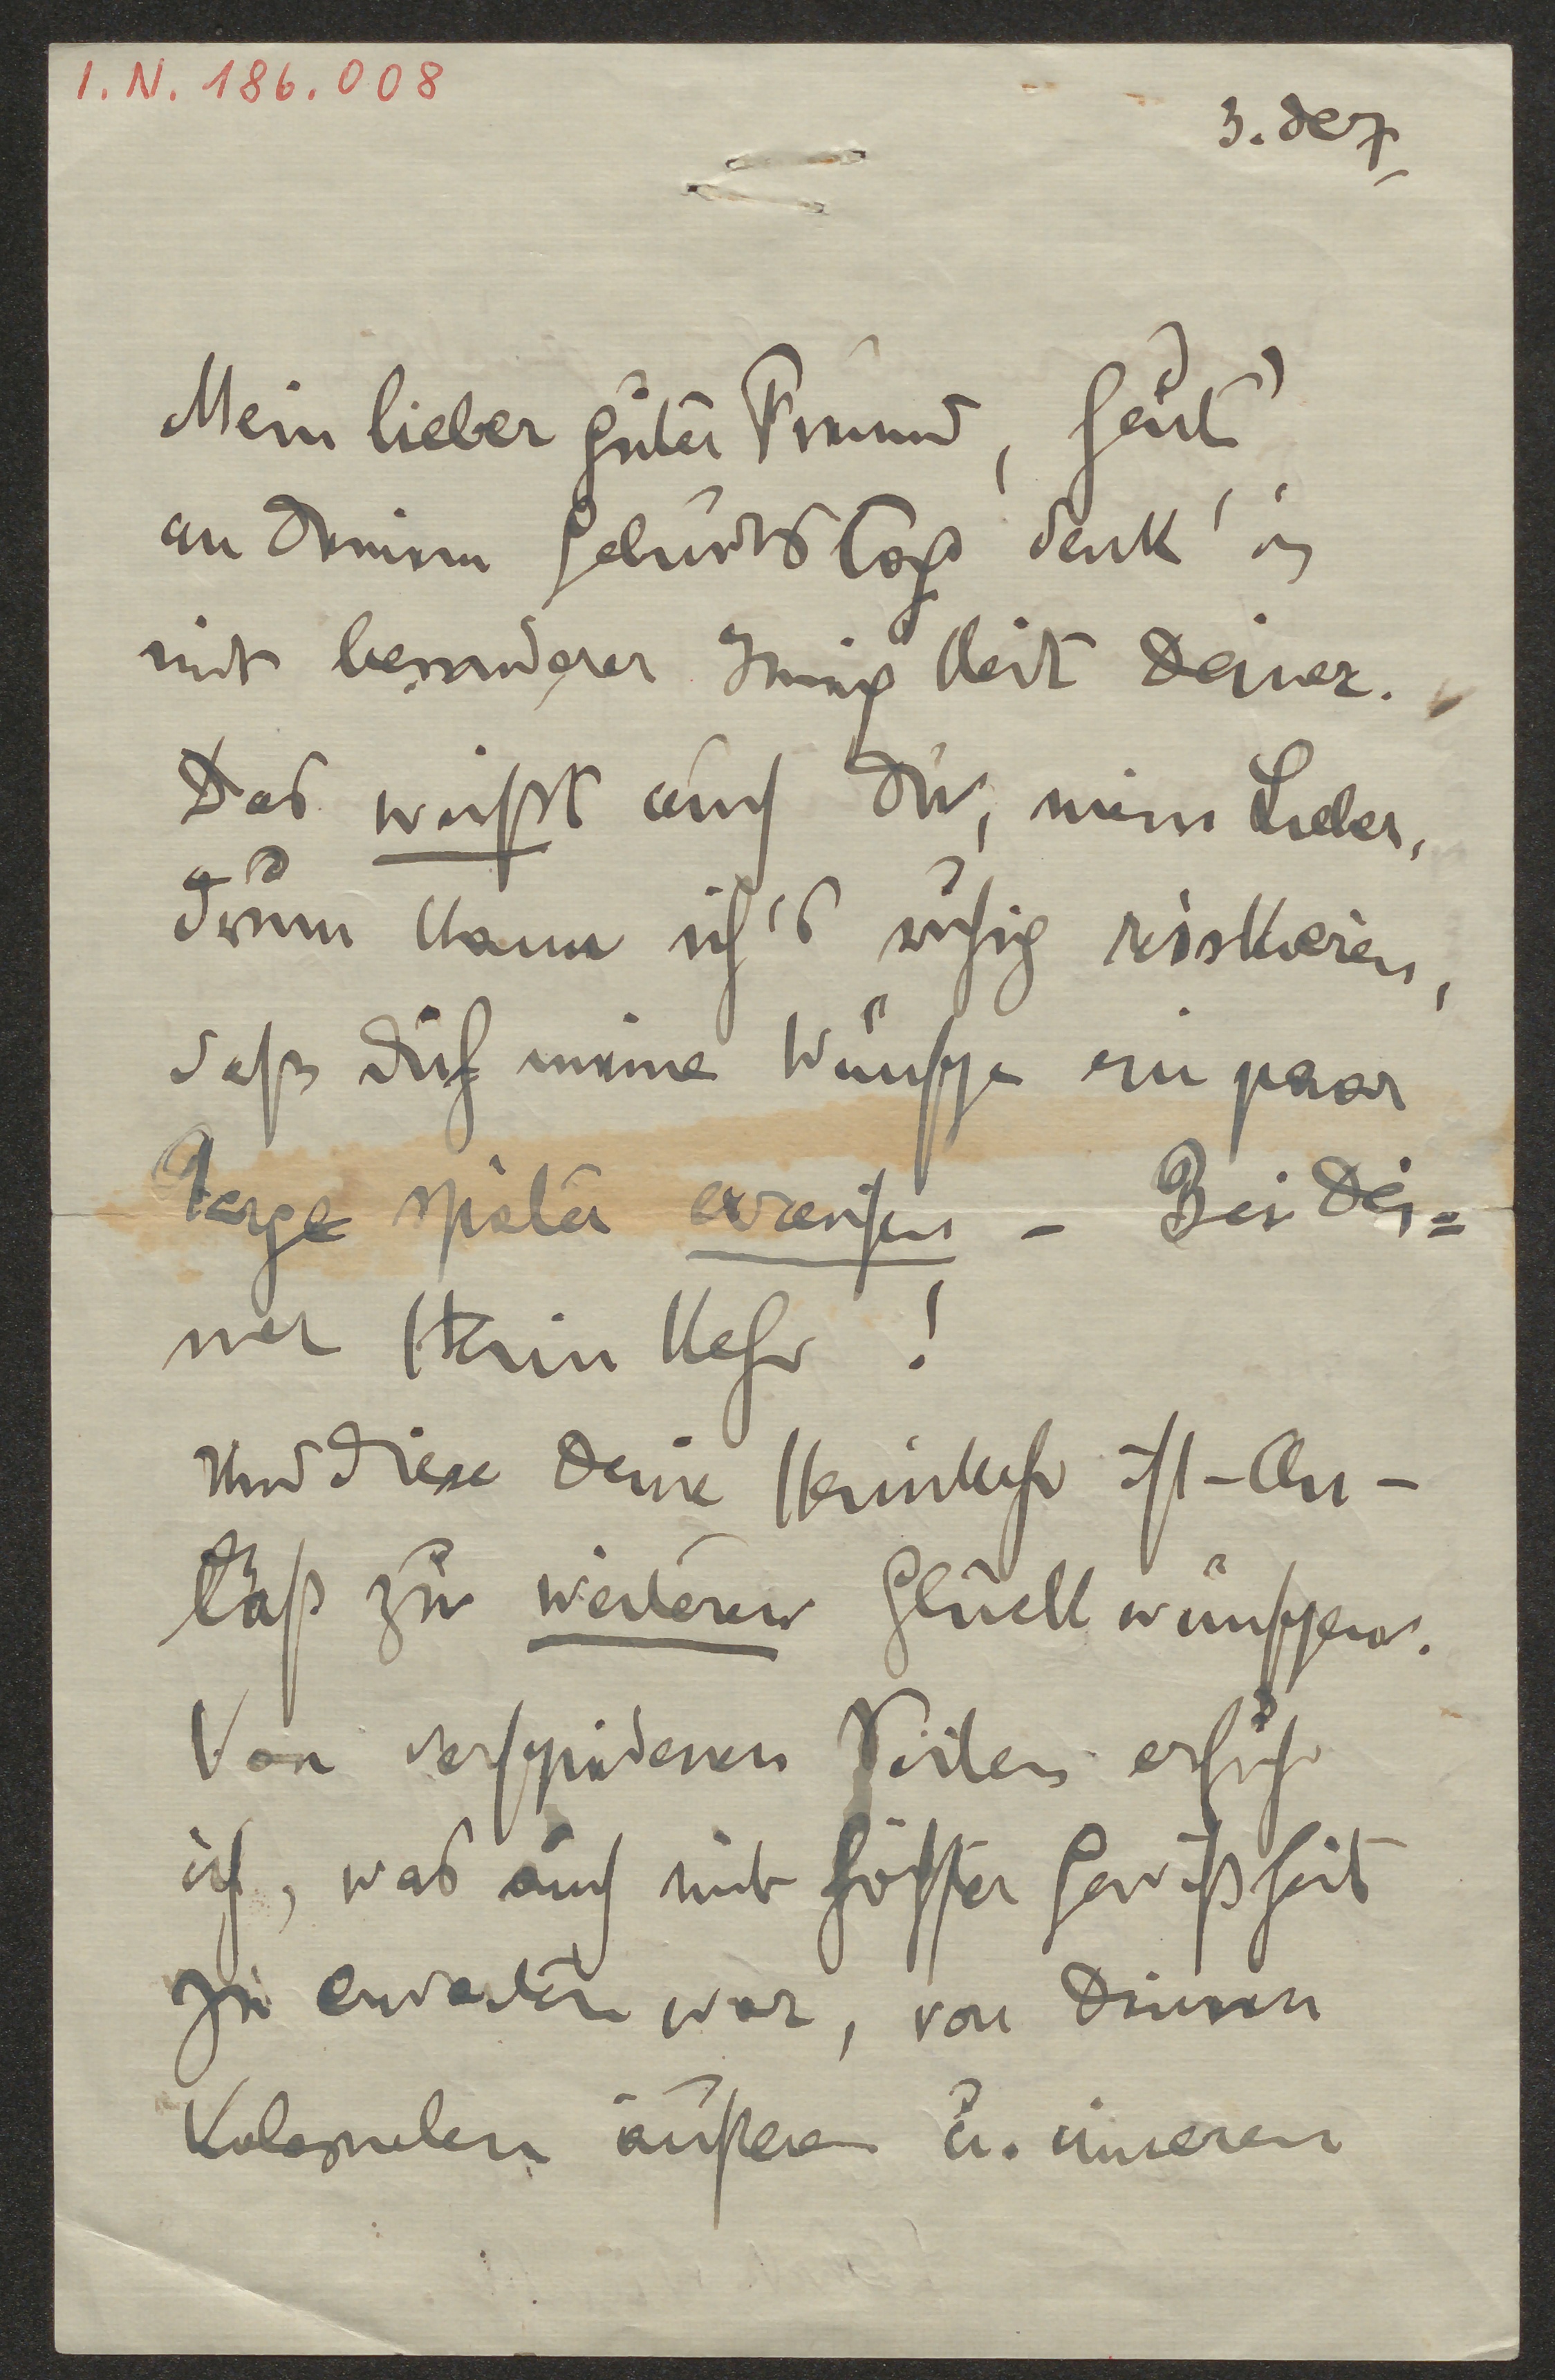 I.N. 186.008
3. Dez
Mein lieber guter Freund, heut'
an Deinem Geburtstag denk' ich
mit besonderer Innigkeit Deiner.
Das weißt auch Du, mein Lieber,
drum kann ich's ruhig riskieren,
daß Dich meine Wünsche ein paar
Tage später erreichen – Bei Dei=
ner Heimkehr!
Und diese Deine Heimkehr ist – An –
laß zu weiteren Glückwünschen.
Von verschiedenen Seiten erfuhr
ich, was auch mit höchster Gewißheit
zu erwarten war, von Deinem
kolossalen äußeren u. inneren